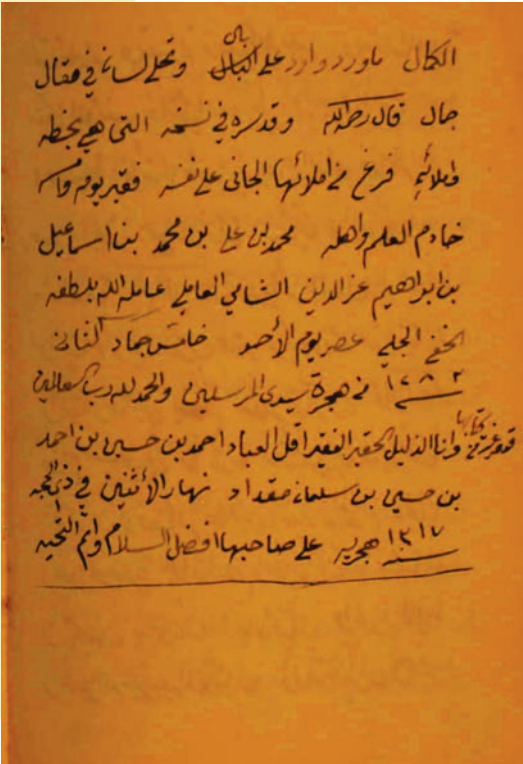 الكمال ماورد وارد على البال وتحلى لسان في مقال
حال قال رحمه الله وقد سره في نسخته التي هي بخطه
واملائه فرغ من املائها الجاني على نفسه فقير يومه وامسه
خادم العلم واهله محمد بن علي بن محمد بن اسماعيل
بن ابراهيم عزالدين الشامي العاملي عامله الله بلطفه
الخفي الجلي عصر يوم الأحد خامس جماد الثاني
١٢٨٢ من هجرة سيدى المرسلين والحمد لله رب العالمين
قد فرغت من كتابتها وانا الذليل الحقير الفقير اقل العباد احمد بن حسين بن احمد
بن حسين بن سليمان مقداد نهار الأثنين في ذي الحجه
١٣١٧ سنه هجريه على صاحبها افضل السلام واتم التحيه